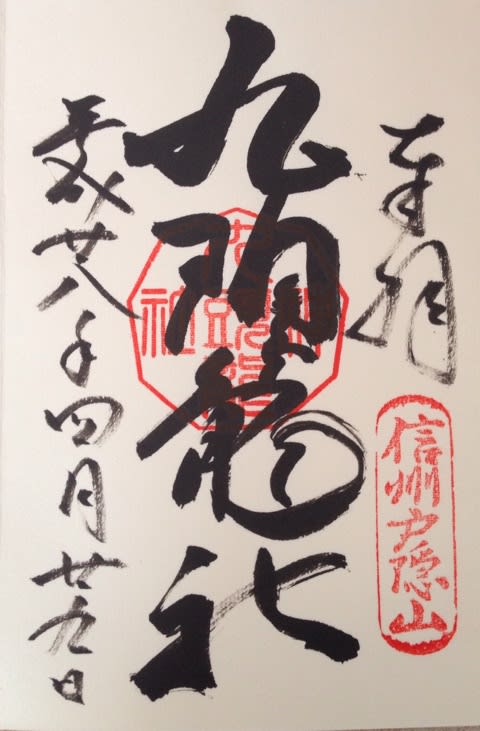 奉拝
信州戸隠山
九頭龍社
平成廿八年四月廿九日